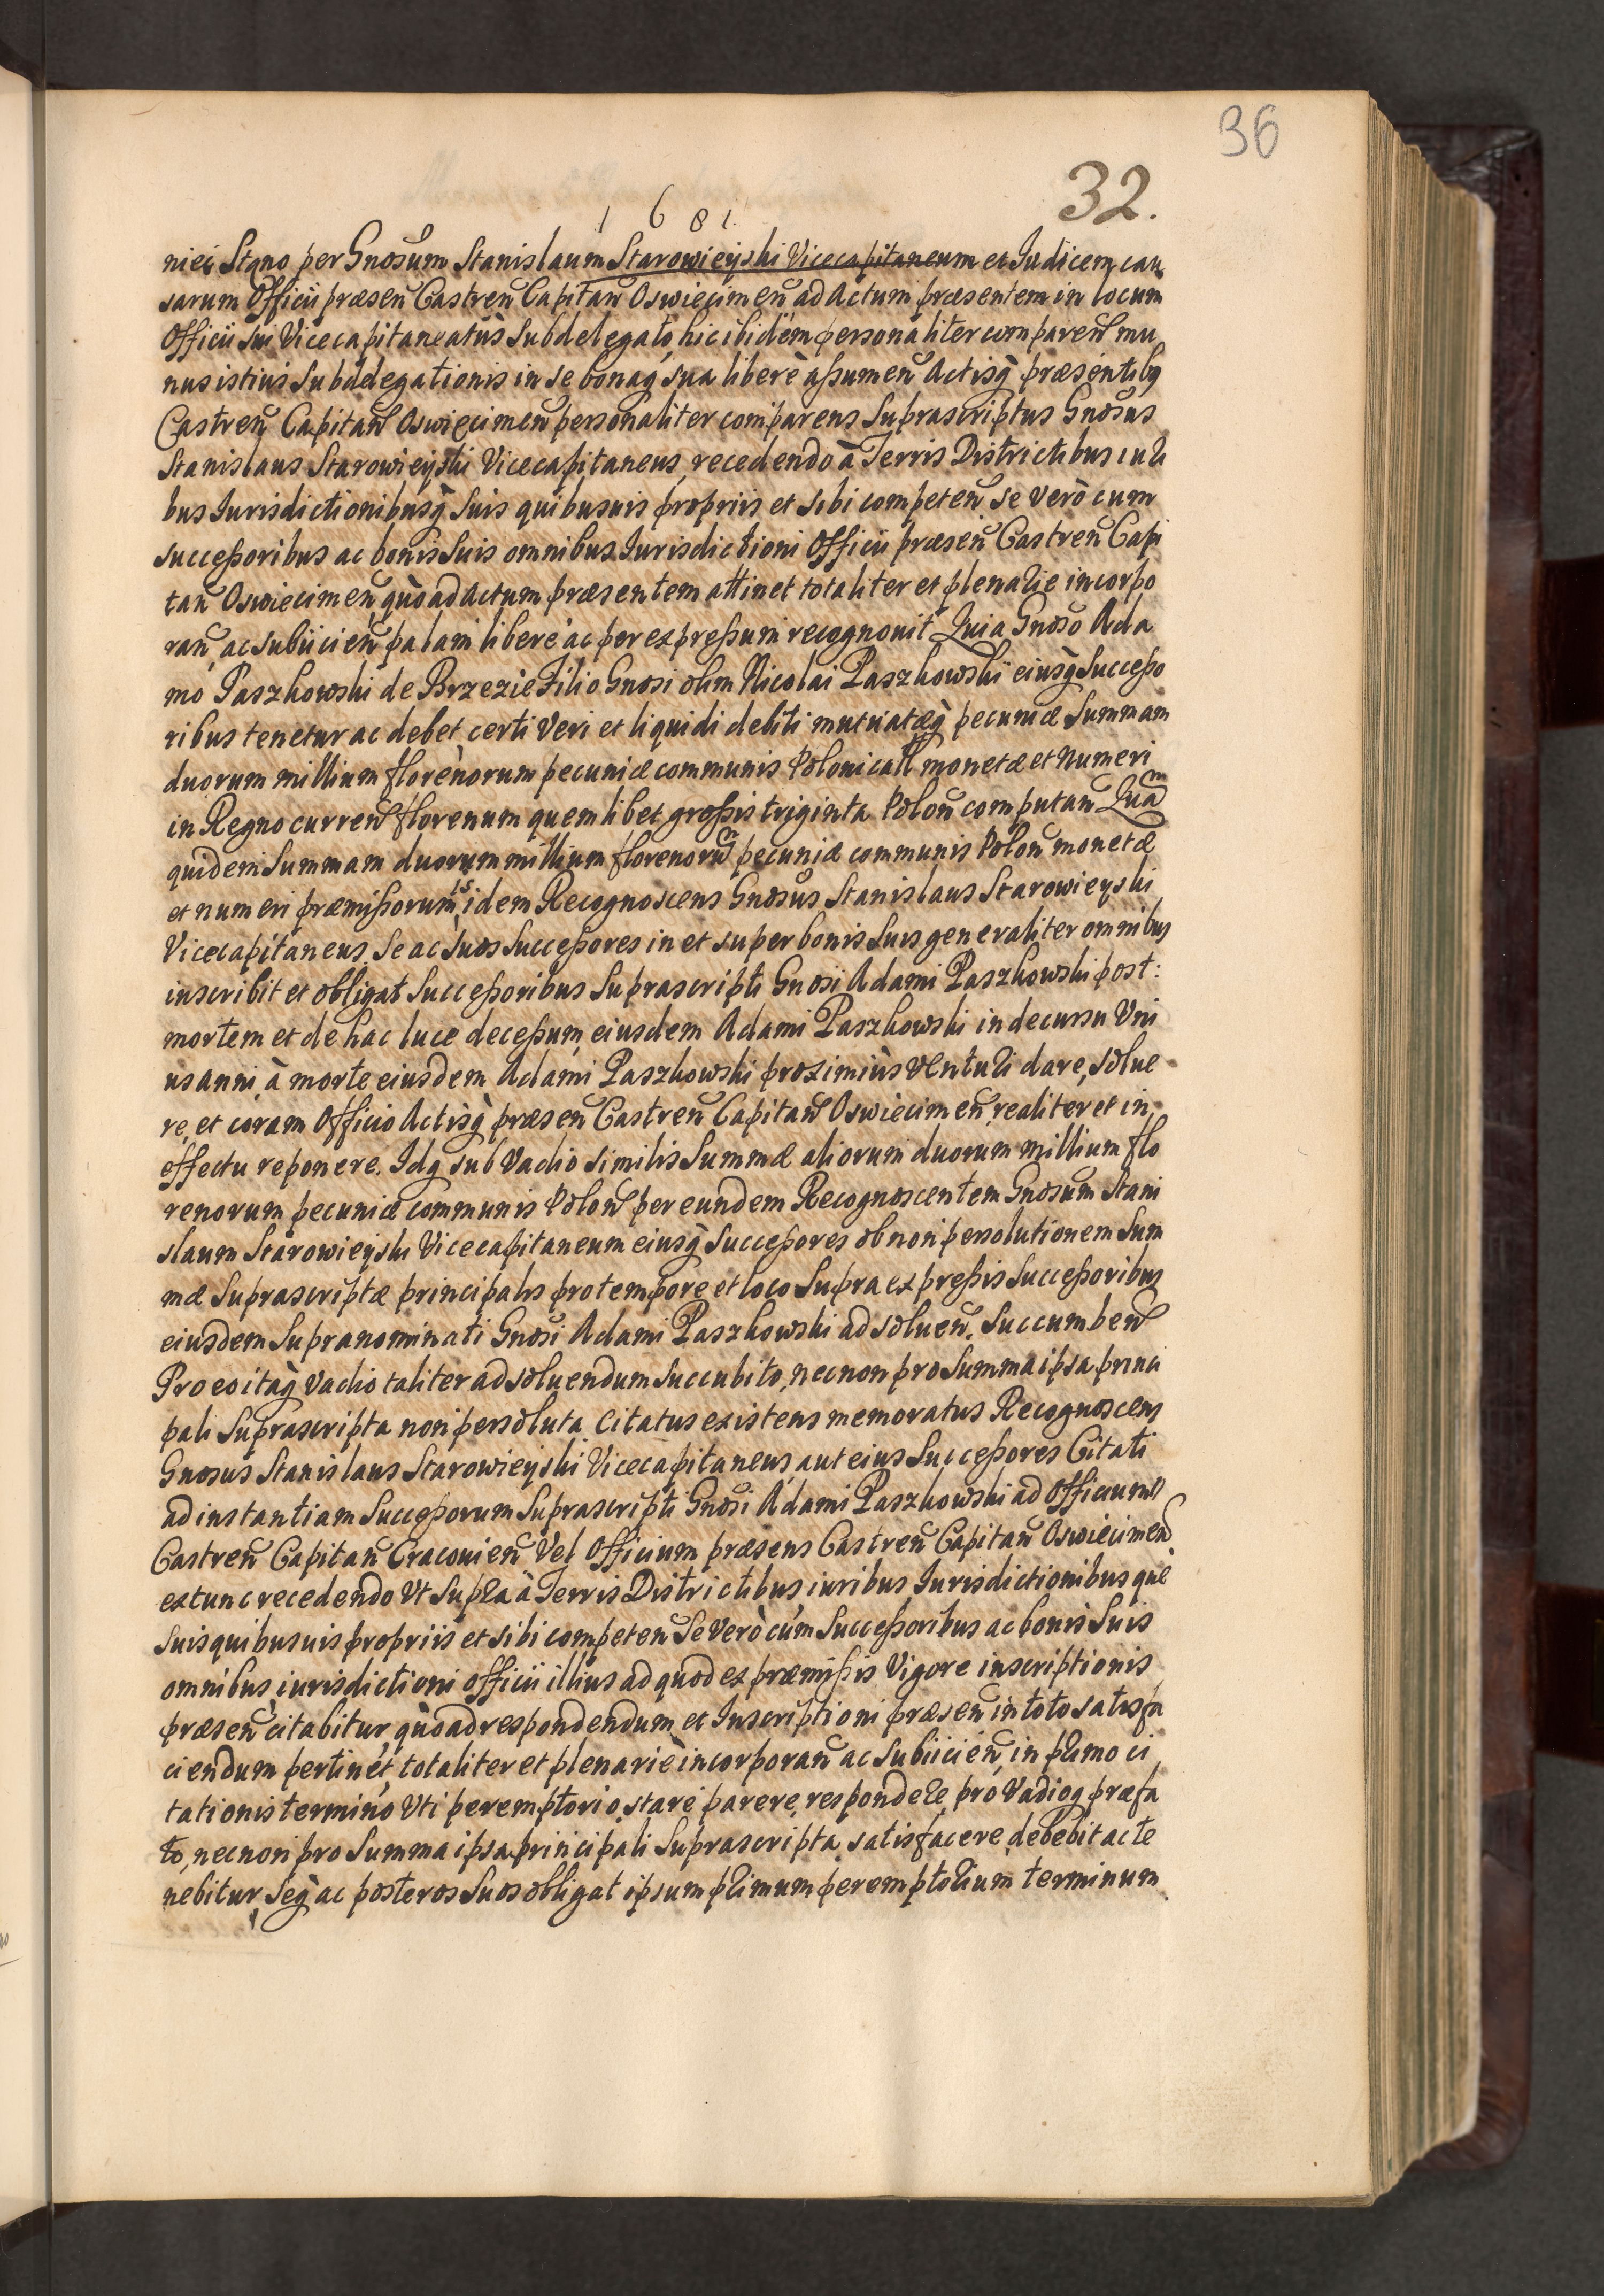 36
32.
1681.
niei Stgno per Gnosum Stanislaum Starowieyski Vicecapitaneum et Iudicem cau
sarum Officii præsen Castren Capitan Oswiecimen ad Actum præsentem in locum
Officii sui Vicecapitaneatus Subdelegato hic ibidem personaliter comparen mu
nus istius Subdelegationis in se bonaq sua liberè aßumen Actisq præsentibq
Castren Capitan Oswiecimen personaliter comparens Suprascriptus Gnosus
Stanislaus Starowieyski Vicecapitaneus, recedendo à Terris Districtibus iuri
bus Iurisdictionibusq Suis quibusuis propriis et sibi competen se verò cum
succeßoribus ac bonis Suis omnibus Iurisdictioni Officii præsen Castren Capi
tan Oswiecimen quò ad Actum præsentem attinet totaliter et plenarie incorpo
ran ac subiicien palam liberè ac per expreßum recognouit Quia Gnoso Ada
mo Paszkowski de Brzezie Filio Gnosi olim Nicolai Paszkowski eiusq Succeßo
ribus tenetur ac debet certi Veri et liquidi debiti mutuatæq pecuniæ Summam
duorum millium florenorum pecuniæ communis Polonicall monetæ et numeri
in Regno curren florenum quemlibet großis triginta Polon computan Quam
quidem Summam duorum millium florenorum pecuniæ communis Polon monetæ
et numeri præmißorum is idem Recognoscens Gnosus Stanislaus Starowieyski
Vicecapitaneus Se ac Suos Succeßores in et super bonis Suis generaliter omnibus
inscribit et obligat Succeßoribus Suprascripti Gnosi Adami Paszkowski post:
mortem et de hac luce deceßum eiusdem Adami Paszkowski in decursu Vni
us anni, à morte eiusdem Adami Paszkowski proximiùs Venturi dare, solue
re, et coram Officio Actisq præsen Castren Capitan Oswiecimen realiter et in
effectu reponere. Idq sub Vadio similis Summæ aliorum duorum millium flo
renorum pecuniæ communis Polon per eundem Recognoscentem Gnosum Stani
slaum Starowieyski Vicecapitaneum eiusq Succeßores ob non persolutionem Sum
mæ Suprascriptæ principalis pro tempore et loco Supra expreßis Succeßoribus
eiusdem Supranominati Gnosi Adami Paszkowski ad soluen. Succumben
Pro eo itaq Vadio taliter ad soluendum Succubito, necnon pro Summa ipsa princi
pali Suprascripta non persoluta Citatus existens memoratus Recognoscens
Gnosus Stanislaus Starowieyski Vicecapitaneus, aut eius Succeßores Citati
ad instantiam Succeßorum Suprascripti Gnosi Adami Paszkowski ad Officium
Castren Capitan Cracouien Vel Officium præsens Castren Capitan Oswiecimen
extunc recedendo Vt Supra à Terris Districtibus, iuribus Iurisdictionibusque
Suis quibusuis propriis et sibi competen Se Verò cum Succeßoribus ac bonis Suis
omnibus iurisdictioni officii illius ad quod ex præmißis Vigore inscriptionis
præsen citabitur, quò ad respondendum et Inscriptioni præsen in toto satisfa
ciendum pertinet, totaliter et plenariè incorporan ac Subiicien, in primo ci
tationis termino Vti peremptorio, stare parere, respondere pro Vadioq præfa
to, necnon pro Summa ipsa principali Suprascripta satisfacere debebit ac te
nebitur, Seq ac posteros Suos obligat ipsum primum peremptorium terminum